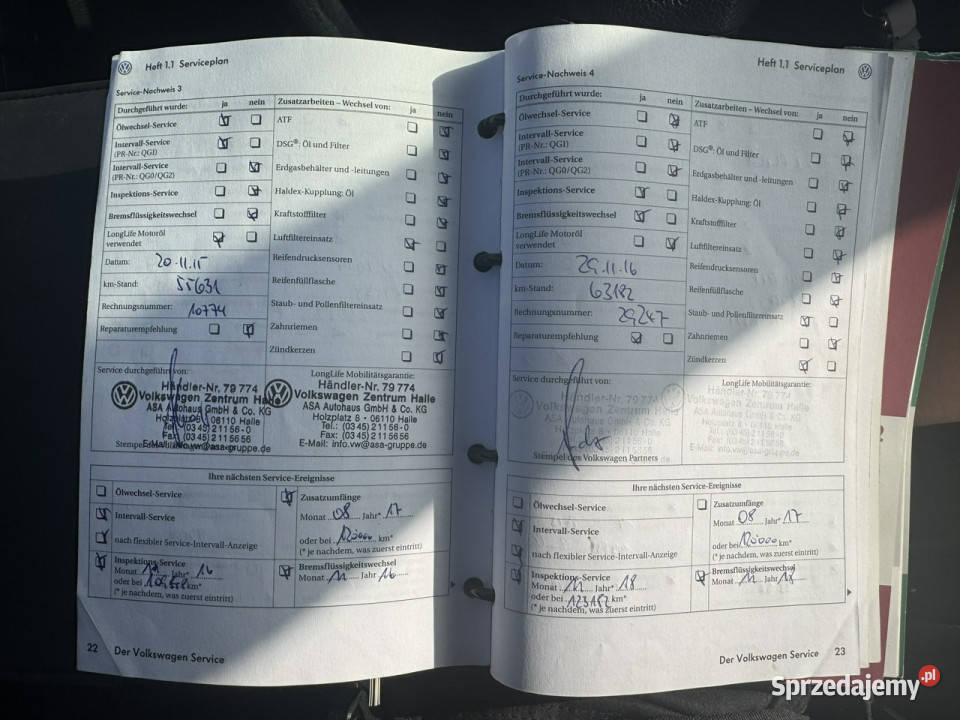 Heft 1.1 Serviceplan
Service-Nachweis 3
Durchgeführt wurde: ja nein
Ölwechsel-Service
Intervall-Service
(PR-Nr.: QG1)
Intervall-Service
(PR-Nr.: QG0/QG2)
Inspektions-Service
Bremsflüssigkeitswechsel
LongLife Motoröl
verwendet
Datum: 20.11.15
km-Stand: 55631
Rechnungsnummer: 10774
Reparaturempfehlung
Zusatzarbeiten – Wechsel von: ja nein
ATF
DSG®: Öl und Filter
Erdgasbehälter und -leitungen
Haldex-Kupplung: Öl
Kraftstofffilter
Luftfiltereinsatz
Reifendrucksensoren
Reifenfüllflasche
Staub- und Pollenfiltereinsatz
Zahnriemen
Zündkerzen
Service durchgeführt von:
Händler-Nr. 79 774
Volkswagen Zentrum Halle
ASA Autohaus GmbH & Co. KG
Holzplatz 8 - 06110 Halle
Tel.: (03 45) 2 11 56 - 0
Fax: (03 45) 2 11 56 56
E-Mail: info.vw@asa-gruppe.de
LongLife Mobilitätsgarantie:
Händler-Nr. 79 774
Volkswagen Zentrum Halle
ASA Autohaus GmbH & Co. KG
Holzplatz 8 - 06110 Halle
Tel.: (03 45) 2 11 56 - 0
Fax: (03 45) 2 11 56 56
E-Mail: info.vw@asa-gruppe.de
Ihre nächsten Service-Ereignisse
Ölwechsel-Service
Intervall-Service
nach flexibler Service-Intervall-Anzeige
Inspektions-Service
Monat 11 Jahr* 16
oder bei km*
(* je nachdem, was zuerst eintritt)
Zusatzumfänge
Monat 08 Jahr* 17
oder bei 120000 km*
(* je nachdem, was zuerst eintritt)
Bremsflüssigkeitswechsel
Monat 11 Jahr 16
22 Der Volkswagen Service
Heft 1.1 Serviceplan
Service-Nachweis 4
Durchgeführt wurde: ja nein
Ölwechsel-Service
Intervall-Service
(PR-Nr.: QG1)
Intervall-Service
(PR-Nr.: QG0/QG2)
Inspektions-Service
Bremsflüssigkeitswechsel
LongLife Motoröl
verwendet
Datum: 29.11.16
km-Stand: 63182
Rechnungsnummer: 29247
Reparaturempfehlung
Zusatzarbeiten – Wechsel von: ja nein
ATF
DSG®: Öl und Filter
Erdgasbehälter und -leitungen
Haldex-Kupplung: Öl
Kraftstofffilter
Luftfiltereinsatz
Reifendrucksensoren
Reifenfüllflasche
Staub- und Pollenfiltereinsatz
Zahnriemen
Zündkerzen
Service durchgeführt von:
Händler-Nr. 79 774
Volkswagen Zentrum Halle
ASA Autohaus GmbH & Co. KG
Stempel des Volkswagen Partners
LongLife Mobilitätsgarantie:
Händler-Nr. 79 774
Volkswagen Zentrum Halle
ASA Autohaus GmbH & Co. KG
Holzplatz 8 - 06110 Halle
Tel.: (03 45) 2 11 56 - 0
Fax: (03 45) 2 11 56 56
E-Mail: info.vw@asa-gruppe.de
Ihre nächsten Service-Ereignisse
Ölwechsel-Service
Intervall-Service
nach flexibler Service-Intervall-Anzeige
Inspektions-Service
Monat 11 Jahr* 18
oder bei 123182 km*
(* je nachdem, was zuerst eintritt)
Zusatzumfänge
Monat 08 Jahr* 17
oder bei 120000 km*
(* je nachdem, was zuerst eintritt)
Bremsflüssigkeitswechsel
Monat 11 Jahr 18
Der Volkswagen Service 23
Sprzedajemy.pl